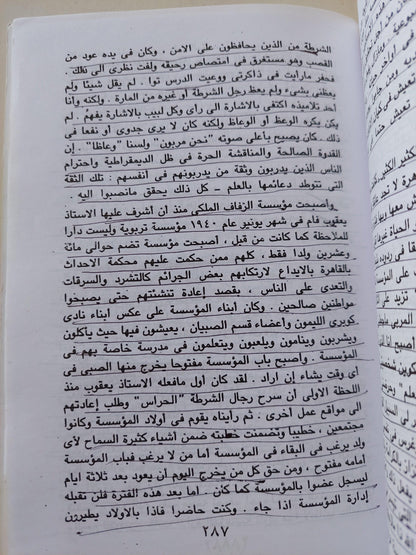 الشرطة من الذين يحافظون على الامن ، وكان فى يده عود من
القصب وهو مستغرق فى امتصاص رحيقه ولفت نظرى الى ذلك .
فحفر مارأيت فى ذاكرتى ووعيت الدرس توا . لم يقل شيئا ولم
يعظنى بشىء ولم يعظ رجل الشرطة أو غيره من المارة . ولكنه وأنا
أحد تلاميذه اكتفى بالاشارة الى رأى وكل لبيب بالاشارة يفهم . لم
يكن يكره الوعظ أو الوعاظ ولكنه كان لا يرى جدوى أو نفعا فى
ذلك . كان يصيح بأعلى صوته "نحن مربون" ولسنا "وعاظا" . إن
القدوة الصالحة والمناقشة الحرة فى ظل الديمقراطية واحترام
الناس الذين يدربون وثقة من يدربونهم فى انفسهم : تلك الثقة
التى تتوطد دعائمها بالعلم – كل ذلك يحقق مانصبوا اليه .
وأصبحت مؤسسة الزفاف الملكى منذ أن أشرف عليها الاستاذ
يعقوب فام فى شهر يونيو عام ١٩٤٠ مؤسسة تربوية وليست دارا
للملاحظة كما كانت من قبل ، أصبحت مؤسسة تضم حوالى مائة
وعشرين ولدا فقط ، كلهم ممن حكمت عليهم محكمة الاحداث
بالقاهرة بالايداع لارتكابهم بعض الجرائم كالتشرد والسرقات
والتعدى على الناس ، بقصد إعادة تنشئتهم حتى يصبحوا
مواطنين صالحين . وكان أبناء المؤسسة على عكس أبناء نادى
كوبرى الليمون وأعضاء قسم الصبيان ، يعيشون فيها حيث يأكلون
ويشربون وينامون ويلعبون ويتعلمون فى مدرسة خاصة بهم فى
المؤسسة . وأصبح باب المؤسسة مفتوحا يخرج منها الصبى فى
أى وقت يشاء إن اراد . لقد كان أول مافعله الاستاذ يعقوب منذ
اللحظة الاولى أن سرح رجال الشرطة "الحراس" وطلب إعادتهم
الى مواقع عمل أخرى . ثم رأيناه يقوم فى أولاد المؤسسة وكانوا
مجتمعين ، خطيبا وتضمنت خطبته ضمن أشياء كثيرة السماح لأى
ولد يرغب فى البقاء فى المؤسسة أما من لا يرغب فباب المؤسسة
أمامه مفتوح ، ومن حق كل من يخرج اليوم أن يعود بعد ثلاثة ايام
ليسجل عضوا بالمؤسسة كما كان . أما بعد هذه الفترة فلن تقبله
إدارة المؤسسة اذا جاء . وكنت حاضرا فاذا بالاولاد يطيرون
٢٨٧